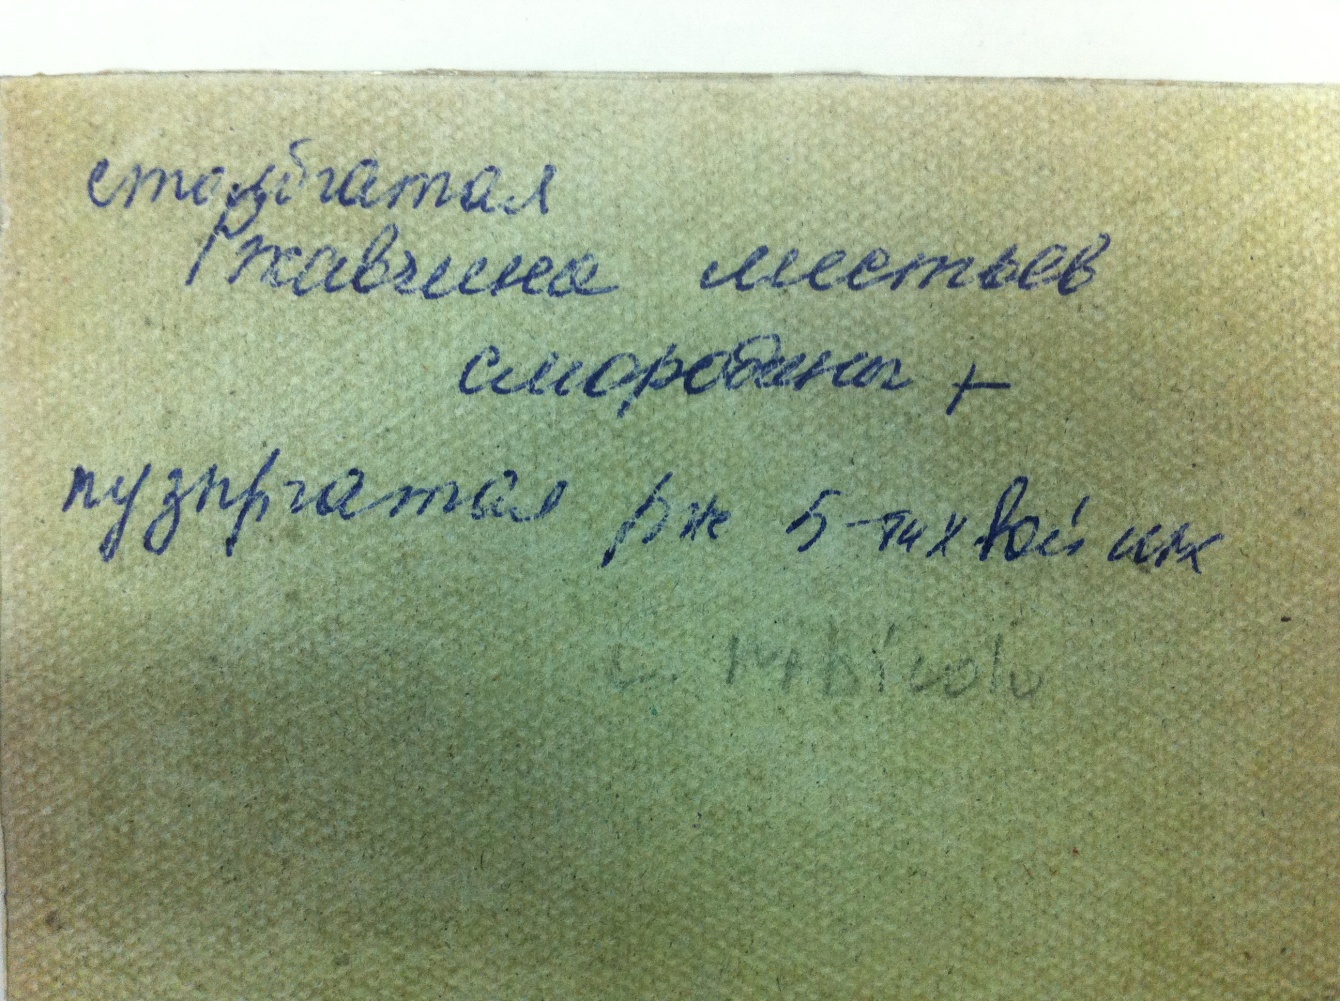 столбчатая
Ржавчина листьев
смородины +
пузырчатая рж 5-тихвойных
C. ribicola